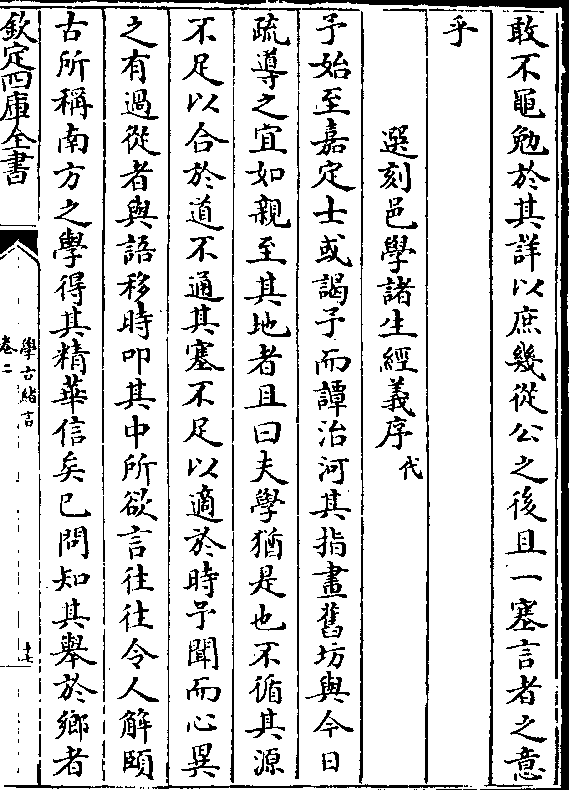 敢不黽勉於其詳以庶幾從公之後且一塞言者之意
乎
選刻邑學諸生經義序代
予始至嘉定士或謁予而譚治河其指畫舊坊與今日
疏導之宜如親至其地者且曰夫學猶是也不循其源
不足以合於道不通其塞不足以適於時予聞而心異
之有過從者與語移時叩其中所欲言往往令人解頤
古所稱南方之學得其精華信矣已問知其舉於鄉者
欽定四庫全書
學古緒言
卷二
十七